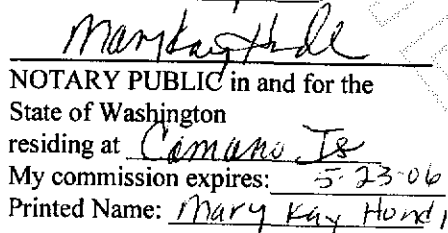 Mary Kay
NOTARY PUBLIC in and for the
State of Washington
residing at Camano Is
My commission expires: 5-23-06
Printed Name: Mary Kay